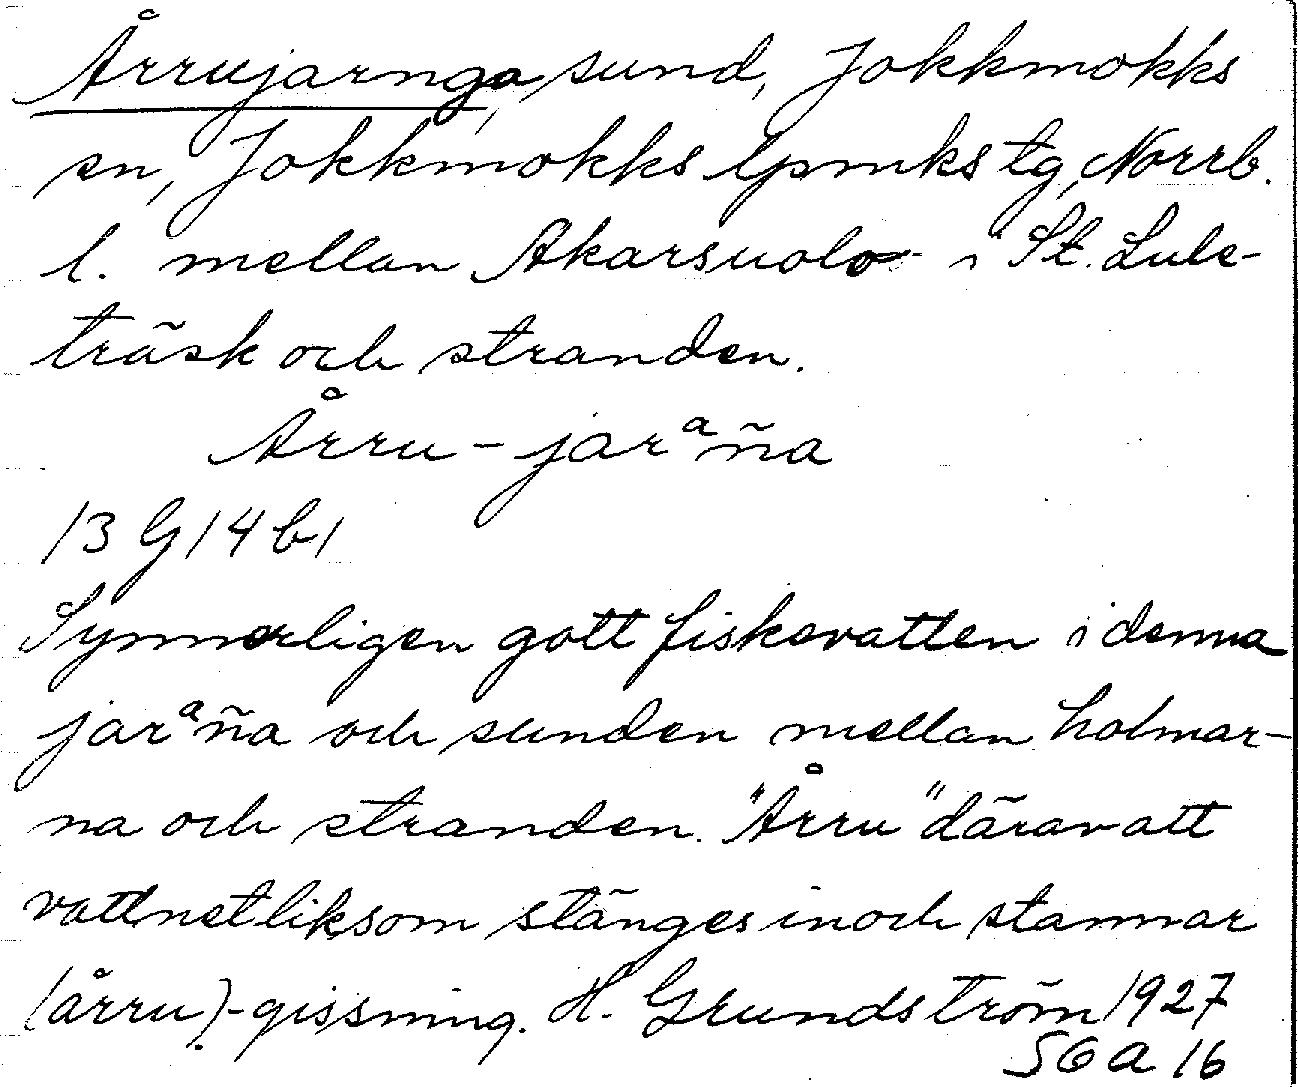 Årrujarnga, sund, Jokkmokks
sn, Jokkmokks lpmks tg, Norrb.
l. mellan Akarsuolo i St. Lule-
träsk och stranden.
Årru-jarᵃŋa
13 G 14 b 1
Synnerligen gott fiskevatten i denna
jarᵃŋa och sunden mellan holmar-
na och stranden. "Årru" därav att
vattnet liksom stänges in och stannar
(årru).-gissning. H. Grundström 1927
SGA 16